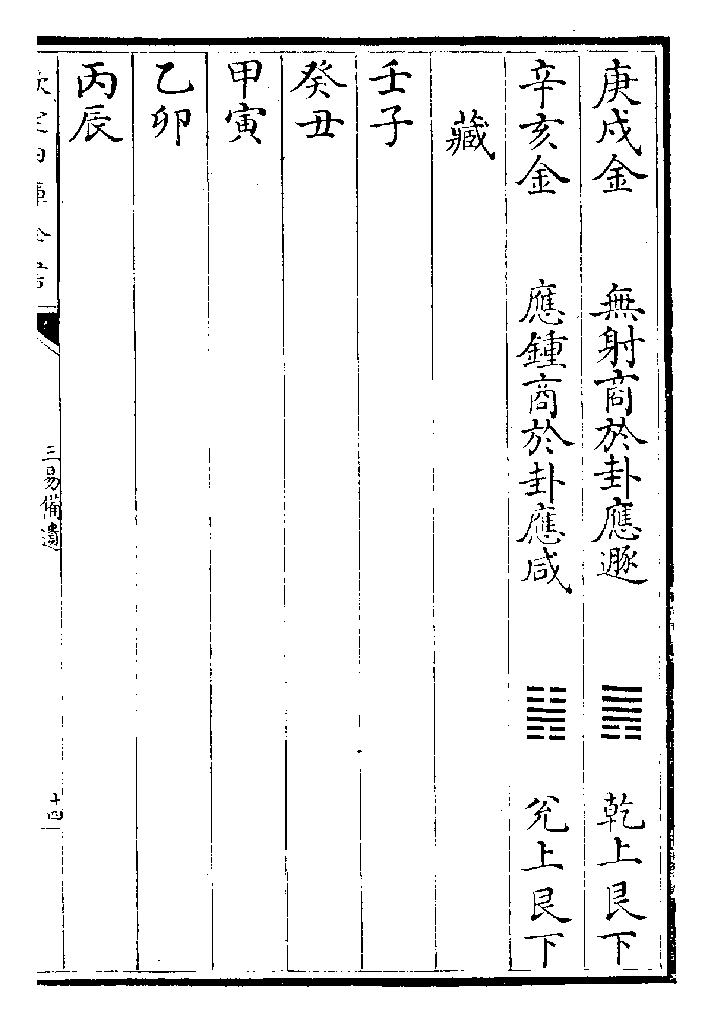 庚戌金 無射商於卦應遯 ䷠ 乾上艮下
辛亥金 應鍾商於卦應咸 ䷞ 兊上艮下
藏
壬子
癸丑
甲寅
乙卯
丙辰
欽定四庫全書
三易備遺
十四